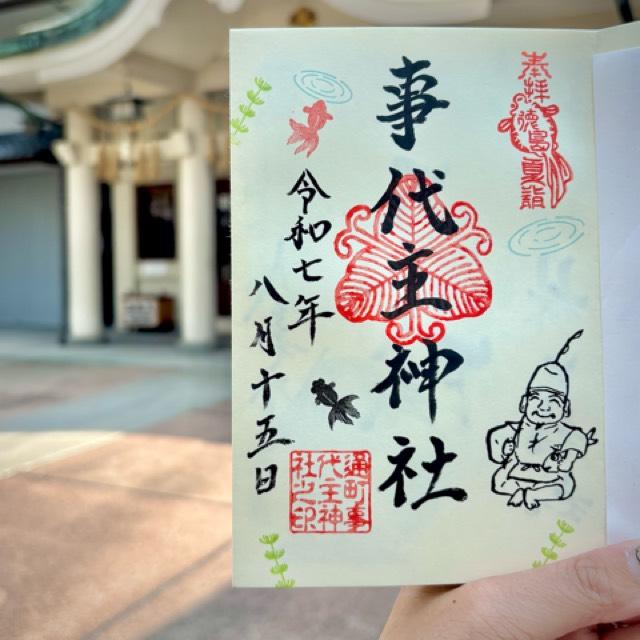 奉拝
徳島夏詣
事代主神社
令和七年
八月十五日
通町事
代主神
社之印